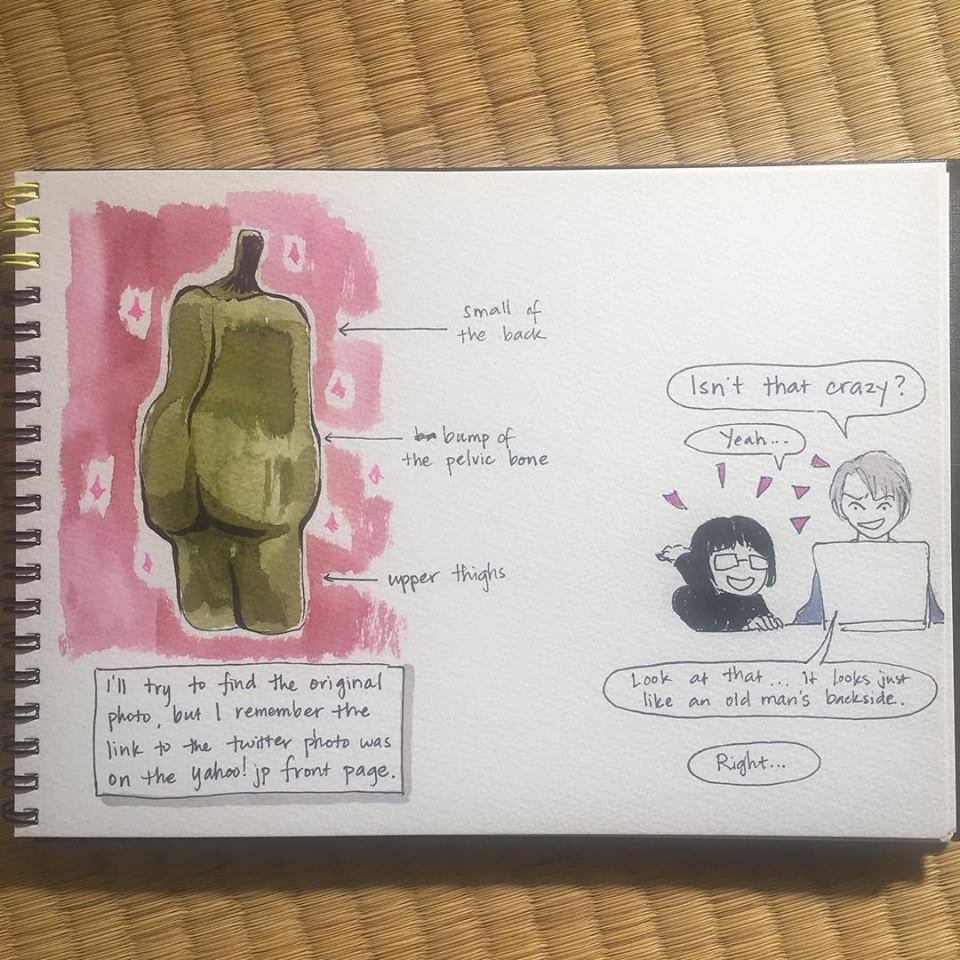 small of
the back
bump of
the pelvic bone
upper thighs
I'll try to find the original
photo, but I remember the
link to the twitter photo was
on the yahoo! jp front page.
Isn't that crazy?
Yeah...
Look at that... it looks just
like an old man's backside.
Right...